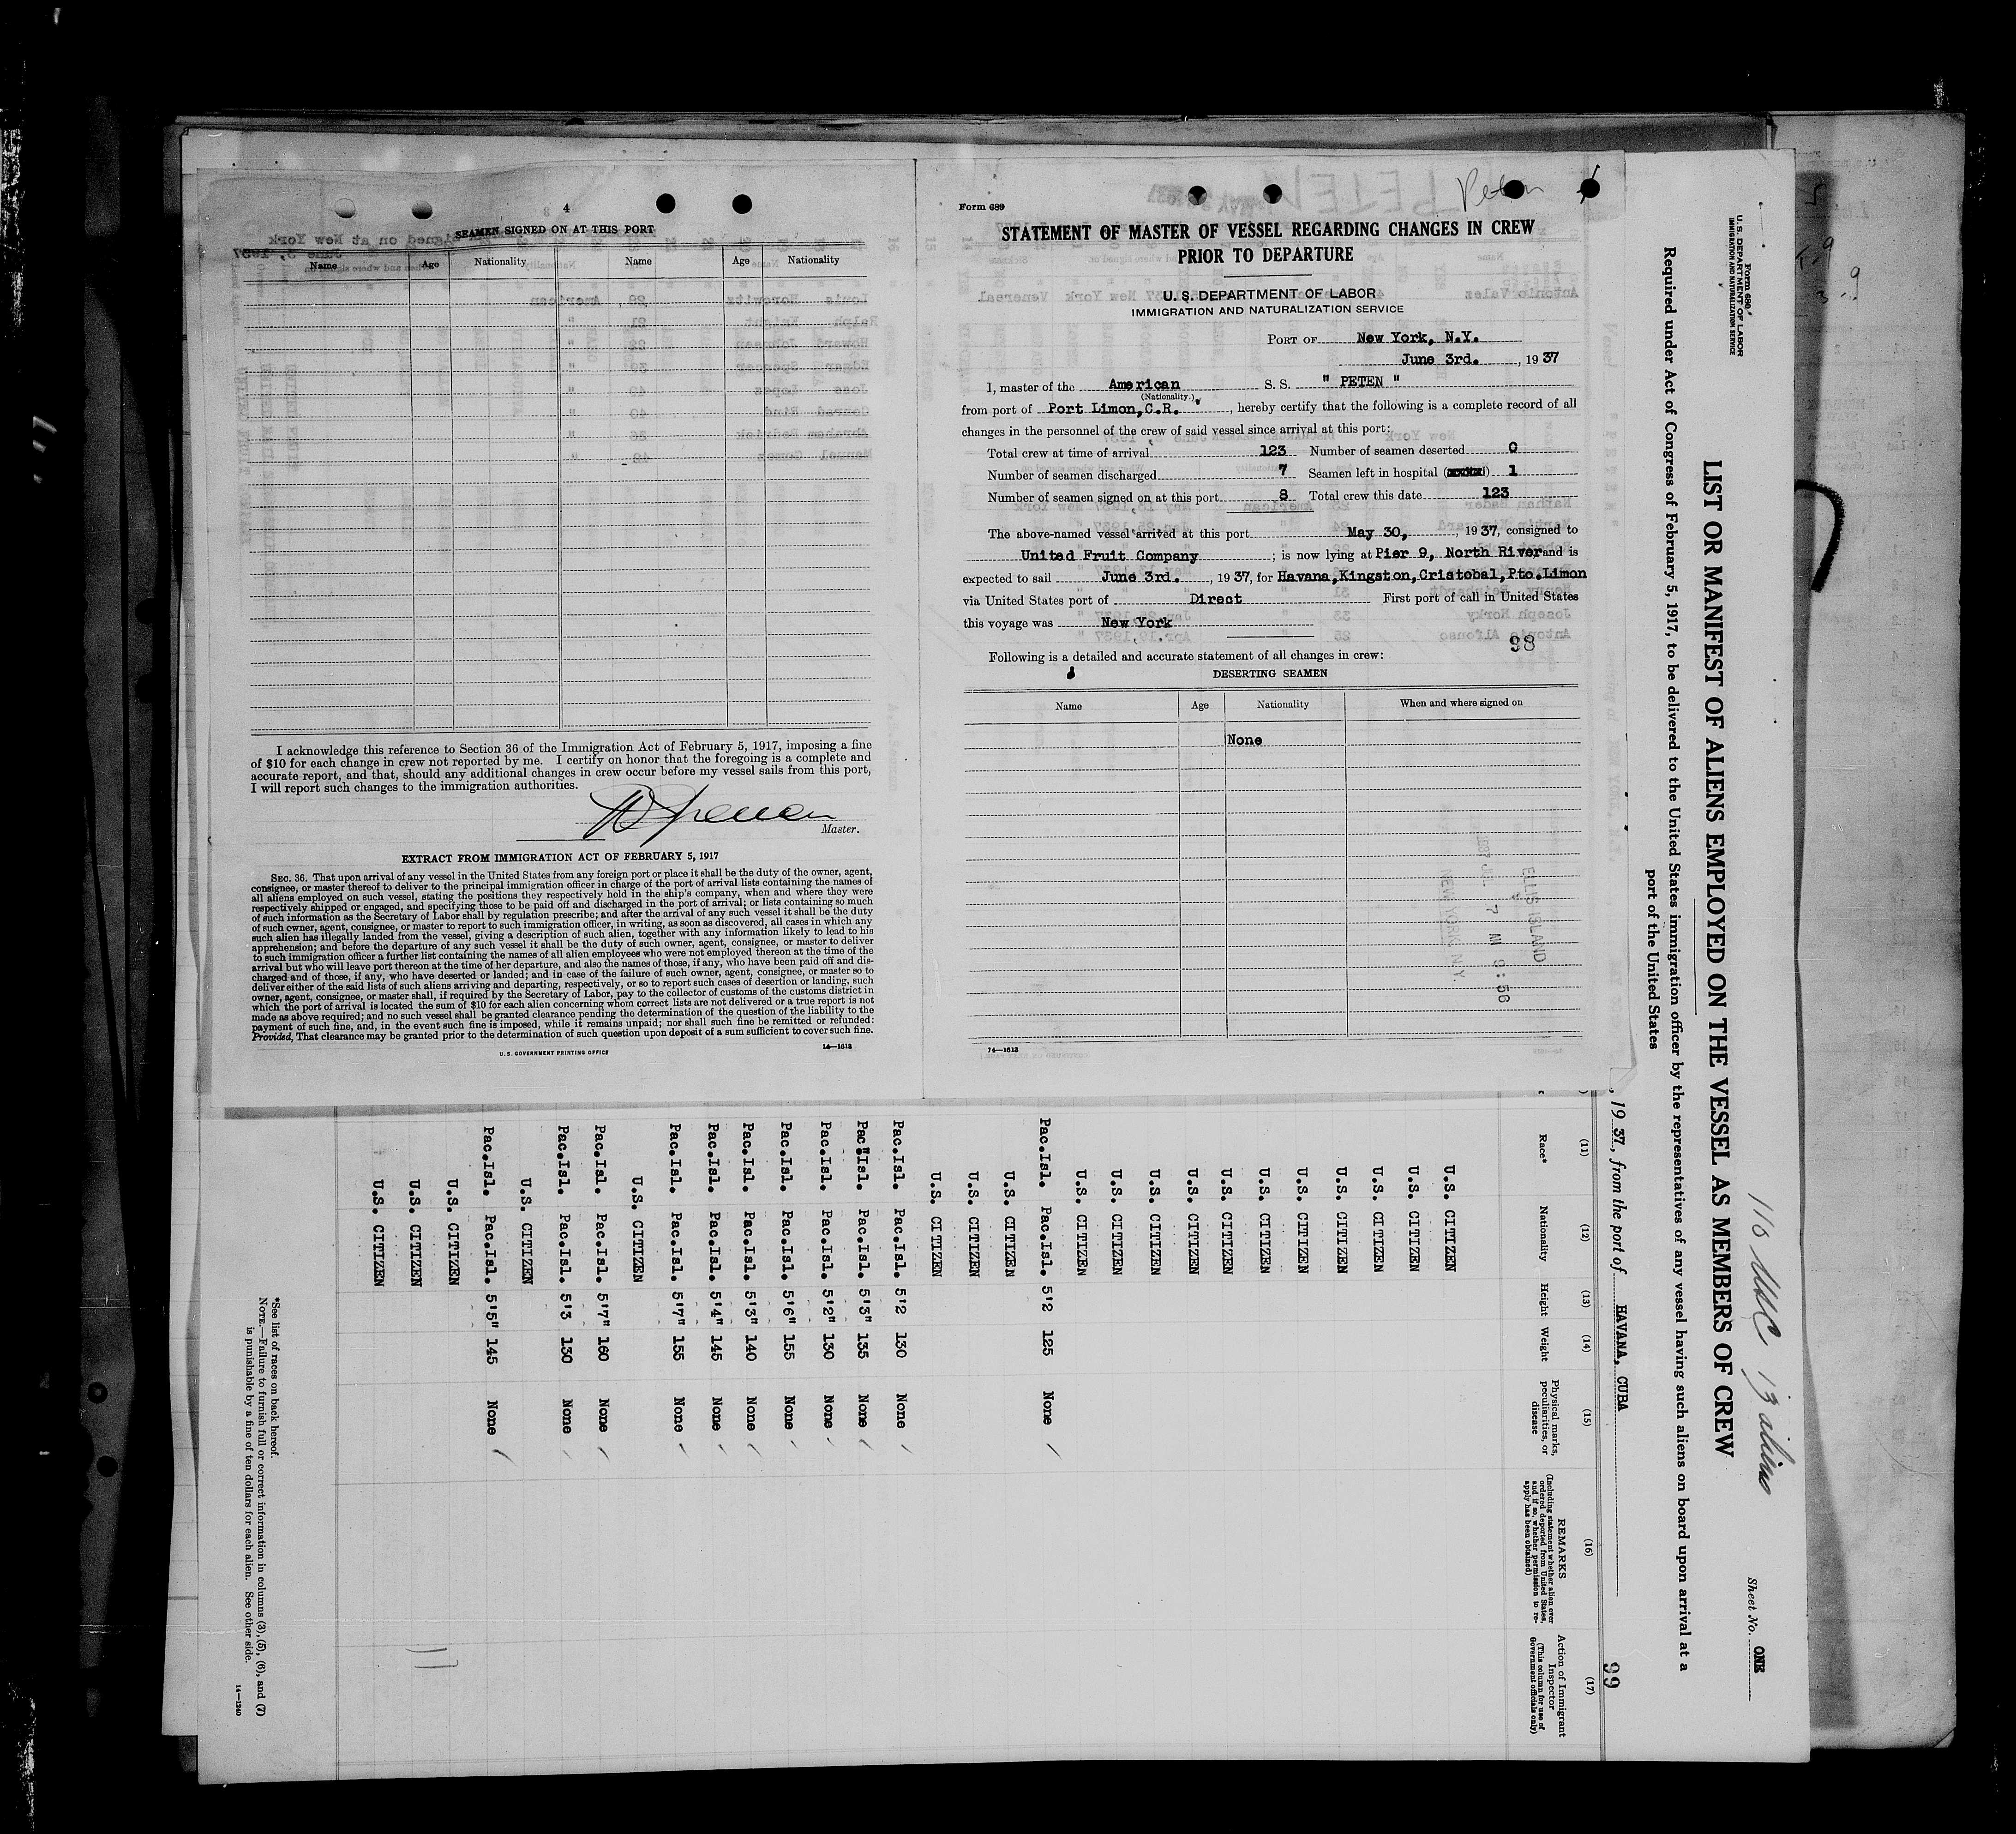 4
SEAMEN SIGNED ON AT THIS PORT
Name Age Nationality Name Age Nationality
I acknowledge this reference to Section 36 of the Immigration Act of February 5, 1917, imposing a fine
of $10 for each change in crew not reported by me. I certify on honor that the foregoing is a complete and
accurate report, and that, should any additional changes in crew occur before my vessel sails from this port,
I will report such changes to the immigration authorities.
Master.
EXTRACT FROM IMMIGRATION ACT OF FEBRUARY 5, 1917
SEC. 36. That upon arrival of any vessel in the United States from any foreign port or place it shall be the duty of the owner, agent,
consignee, or master thereof to deliver to the principal immigration officer in charge of the port of arrival lists containing the names of
all aliens employed on such vessel, stating the positions they respectively hold in the ship's company, when and where they were
respectively shipped or engaged, and specifying those to be paid off and discharged in the port of arrival; or lists containing so much
of such information as the Secretary of Labor shall by regulation prescribe; and after the arrival of any such vessel it shall be the duty
of such owner, agent, consignee, or master to report to such immigration officer, in writing, as soon as discovered, all cases in which any
such alien has illegally landed from the vessel, giving a description of such alien, together with any information likely to lead to his
apprehension; and before the departure of any such vessel it shall be the duty of such owner, agent, consignee, or master to deliver
to such immigration officer a further list containing the names of all alien employees who were not employed thereon at the time of the
arrival but who will leave port thereon at the time of her departure, and also the names of those, if any, who have been paid off and dis-
charged and of those, if any, who have deserted or landed; and in case of the failure of such owner, agent, consignee, or master so to
deliver either of the said lists of such aliens arriving and departing, respectively, or so to report such cases of desertion or landing, such
owner, agent, consignee, or master shall, if required by the Secretary of Labor, pay to the collector of customs of the customs district in
which the port of arrival is located the sum of $10 for each alien concerning whom correct lists are not delivered or a true report is not
made as above required; and no such vessel shall be granted clearance pending the determination of the question of the liability to the
payment of such fine, and, in the event such fine is imposed, while it remains unpaid; nor shall such fine be remitted or refunded:
Provided, That clearance may be granted prior to the determination of such question upon deposit of a sum sufficient to cover such fine.
U.S. GOVERNMENT PRINTING OFFICE 14—1613
Peten
Form 689
STATEMENT OF MASTER OF VESSEL REGARDING CHANGES IN CREW
PRIOR TO DEPARTURE
U. S. DEPARTMENT OF LABOR
IMMIGRATION AND NATURALIZATION SERVICE
PORT OF New York, N.Y.
June 3rd., 1937
I, master of the American S. S. " PETEN "
(Nationality)
from port of Port Limon, C.R., hereby certify that the following is a complete record of all
changes in the personnel of the crew of said vessel since arrival at this port:
Total crew at time of arrival 123 Number of seamen deserted 0
Number of seamen discharged 7 Seamen left in hospital 1
Number of seamen signed on at this port 8 Total crew this date 123
The above-named vessel arrived at this port May 30, 1937, consigned to
United Fruit Company; is now lying at Pier 9, North River and is
expected to sail June 3rd., 1937, for Havana,Kingston,Cristobal,Pto.Limon
via United States port of Direct First port of call in United States
this voyage was New York
98
Following is a detailed and accurate statement of all changes in crew:
DESERTING SEAMEN
Name Age Nationality When and where signed on
None
ELLIS ISLAND
1937 JUL 7 AM 9:56
NEW YORK, N.Y.
14—1613
Form 680
U. S. DEPARTMENT OF LABOR
IMMIGRATION AND NATURALIZATION SERVICE
Sheet No. ONE
LIST OR MANIFEST OF ALIENS EMPLOYED ON THE VESSEL AS MEMBERS OF CREW
Required under Act of Congress of February 5, 1917, to be delivered to the United States immigration officer by the representatives of any vessel having such aliens on board upon arrival at a
port of the United States
, 1937, from the port of HAVANA, CUBA
99
(11) (12) (13) (14) (15) (16) (17)
Race* Nationality Height Weight Physical marks, peculiarities, or disease REMARKS (Including statement whether alien ever ordered deported from United States, and if so, whether permission to re-apply has been obtained) Action of Immigrant Inspector (This column for use of Government officials only)
U.S. CITIZEN
U.S. CITIZEN
U.S. CITIZEN
U.S. CITIZEN
U.S. CITIZEN
U.S. CITIZEN
U.S. CITIZEN
U.S. CITIZEN
U.S. CITIZEN
U.S. CITIZEN
U.S. CITIZEN
Pac.Isl. Pac.Isl. 5'2 125 None
U.S. CITIZEN
U.S. CITIZEN
U.S. CITIZEN
Pac.Isl. Pac.Isl. 5'2 130 None
Pac.Isl. Pac.Isl. 5'3" 135 None
Pac.Isl. Pac.Isl. 5'2" 130 None
Pac.Isl. Pac.Isl. 5'6" 155 None
Pac.Isl. Pac.Isl. 5'3" 140 None
Pac.Isl. Pac.Isl. 5'4" 145 None
Pac.Isl. Pac.Isl. 5'7" 155 None
U.S. CITIZEN
Pac.Isl. Pac.Isl. 5'7" 160 None
Pac.Isl. Pac.Isl. 5'3 130 None
U.S. CITIZEN
Pac.Isl. Pac.Isl. 5'5" 145 None
U.S. CITIZEN
U.S. CITIZEN
U.S. CITIZEN
*See list of races on back hereof.
NOTE.—Failure to furnish full or correct information in columns (3), (5), (6), and (7)
is punishable by a fine of ten dollars for each alien. See other side.
14—1240